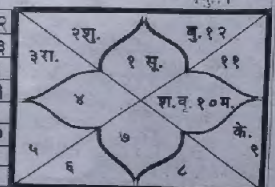 २शु.
बु.१२
३रा.
१ सू.
११
४
श.वृ.१०म.
५
७
के.
९
६
८